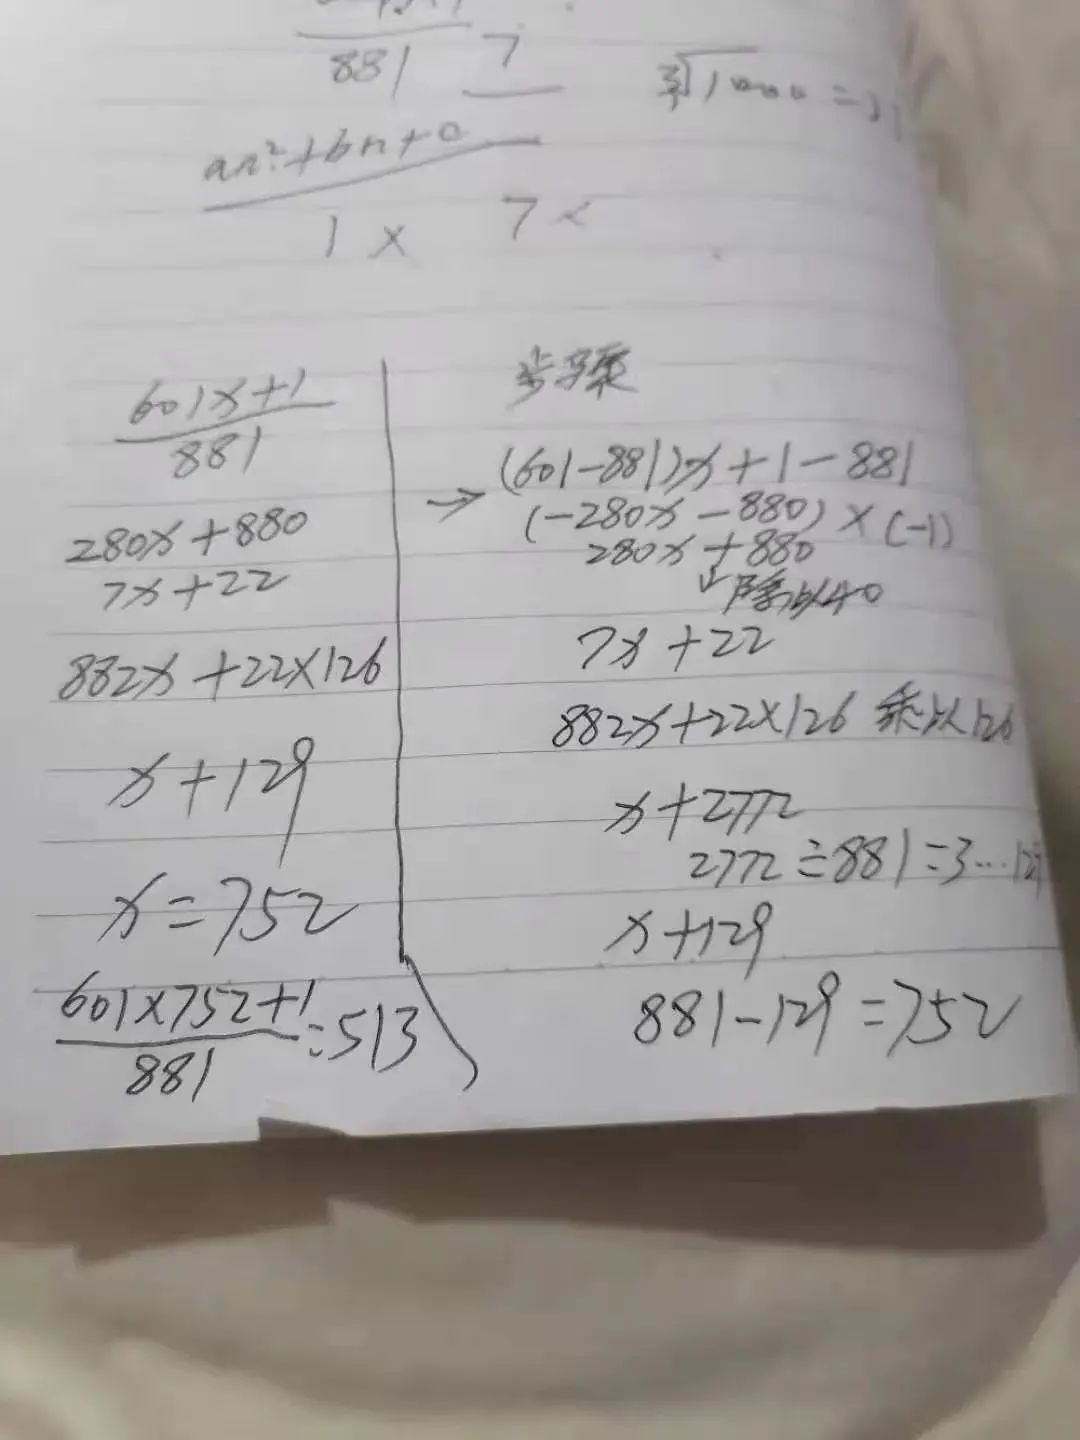 881 7
∛1000 =
an²+bn+c
1 × 7 <
601x+1
881
280x+880
7x+22
882x+22×126
x+129
x=752
601×752+1
881
=513
步骤
→ (601-881)x+1-881
(-280x-880)×(-1)
280x+880
↓除以40
7x+22
882x+22×126 乘以126
x+2772
2772÷881=3...129
x+129
881-129=752